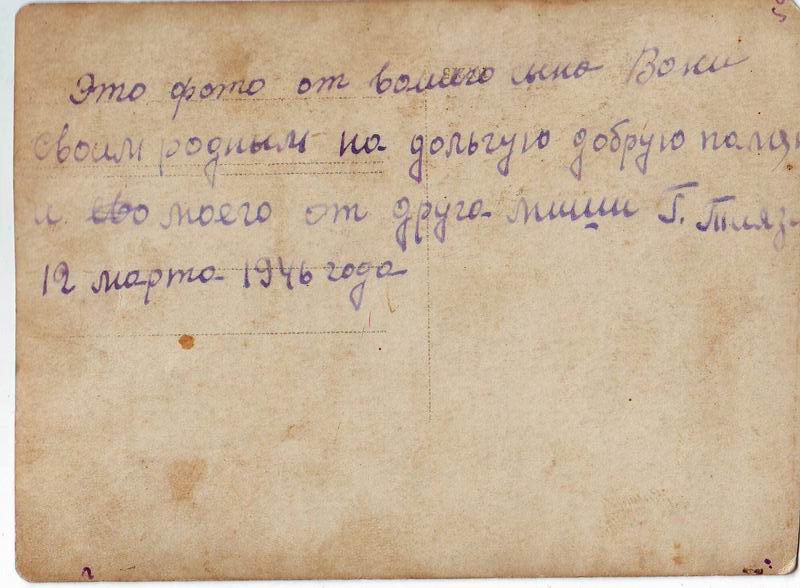 Это фото от вашего сына Вани
своим родным на дольгую добрую памя
и моего от друга миши Г. Тляз-
12 марта 1946 года